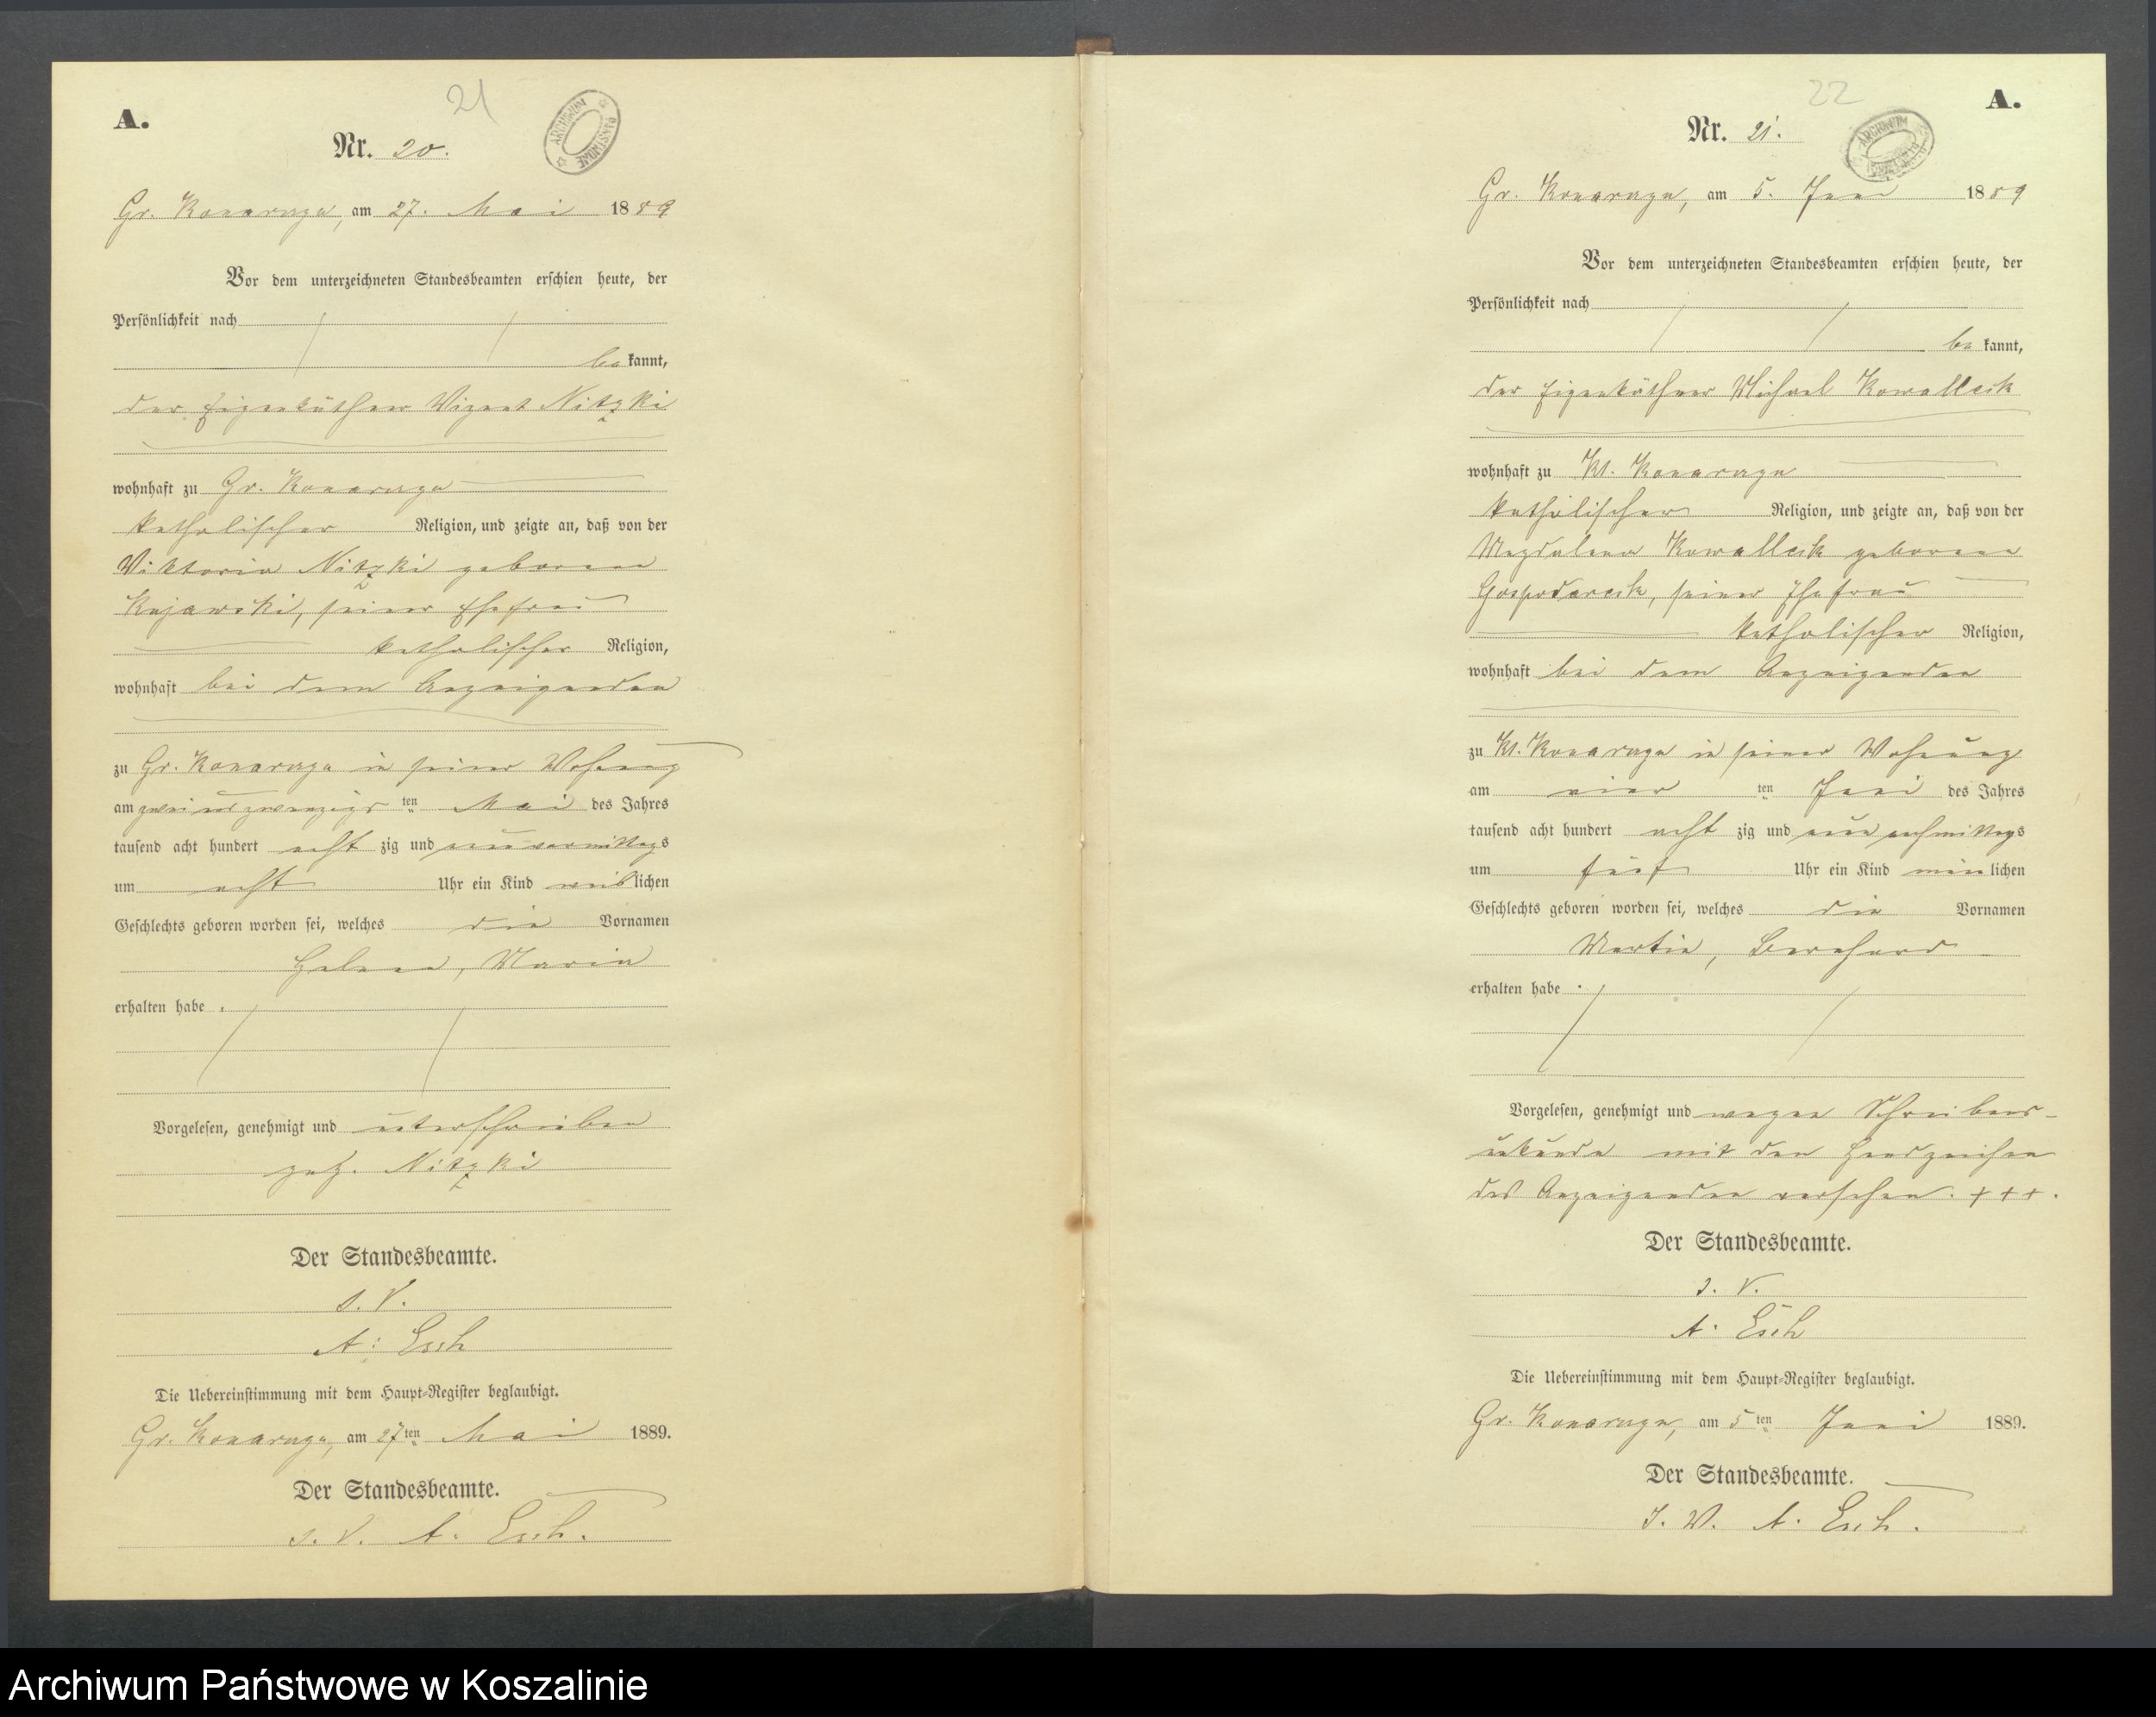 21
A.
Nr. 20.
ARCHIWUM PAŃSTWOWE
Gr. Konarczyn, am 27. Mai 1889
Vor dem unterzeichneten Standesbeamten erschien heute, der
Persönlichkeit nach
be kannt,
der Eigenkäthner Vizent Nitzki
wohnhaft zu Gr. Konarczyn
katholischer Religion, und zeigte an, daß von der
Viktoria Nitzki geborene
Kujawski, seiner Ehefrau
katholischer Religion,
wohnhaft bei dem Anzeigenden
zu Gr. Konarczyn in seiner Wohnung
am zwei und zwanzigsten Mai des Jahres
tausend acht hundert acht zig und neun vormittags
um acht Uhr ein Kind weiblichen
Geschlechts geboren worden sei, welches die Vornamen
Helene, Maria
erhalten habe.
Vorgelesen, genehmigt und unterschrieben
gez. Nitzki
Der Standesbeamte.
I. V.
A. Esch
Die Uebereinstimmung mit dem Haupt-Register beglaubigt.
Gr. Konarczyn, am 27ten Mai 1889.
Der Standesbeamte.
I. V. A. Esch.
22
A.
Nr. 21.
ARCHIWUM PAŃSTWOWE
Gr. Konarczyn, am 5. Juni 1889
Vor dem unterzeichneten Standesbeamten erschien heute, der
Persönlichkeit nach
be kannt,
der Eigenkäthner Michael Kowallek
wohnhaft zu Kl. Konarczyn
katholischer Religion, und zeigte an, daß von der
Magdalena Kowallek geborene
seiner Ehefrau
katholischer Religion,
wohnhaft bei dem Anzeigenden
zu Kl. Konarczyn in seiner Wohnung
am vier ten Juni des Jahres
tausend acht hundert acht zig und neun nachmittags
um fünf Uhr ein Kind männlichen
Geschlechts geboren worden sei, welches die Vornamen
Martin, Bernhard
erhalten habe.
Vorgelesen, genehmigt und wegen Schreibens-
unkunde mit den Handzeichen
des Anzeigenden versehen. +++.
Der Standesbeamte.
I. V.
A. Esch
Die Uebereinstimmung mit dem Haupt-Register beglaubigt.
Gr. Konarczyn, am 5ten Juni 1889.
Der Standesbeamte.
I. V. A. Esch.
Archiwum Państwowe w Koszalinie